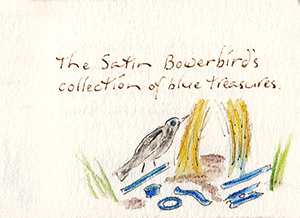 The Satin Bowerbird's
collection of blue treasures.